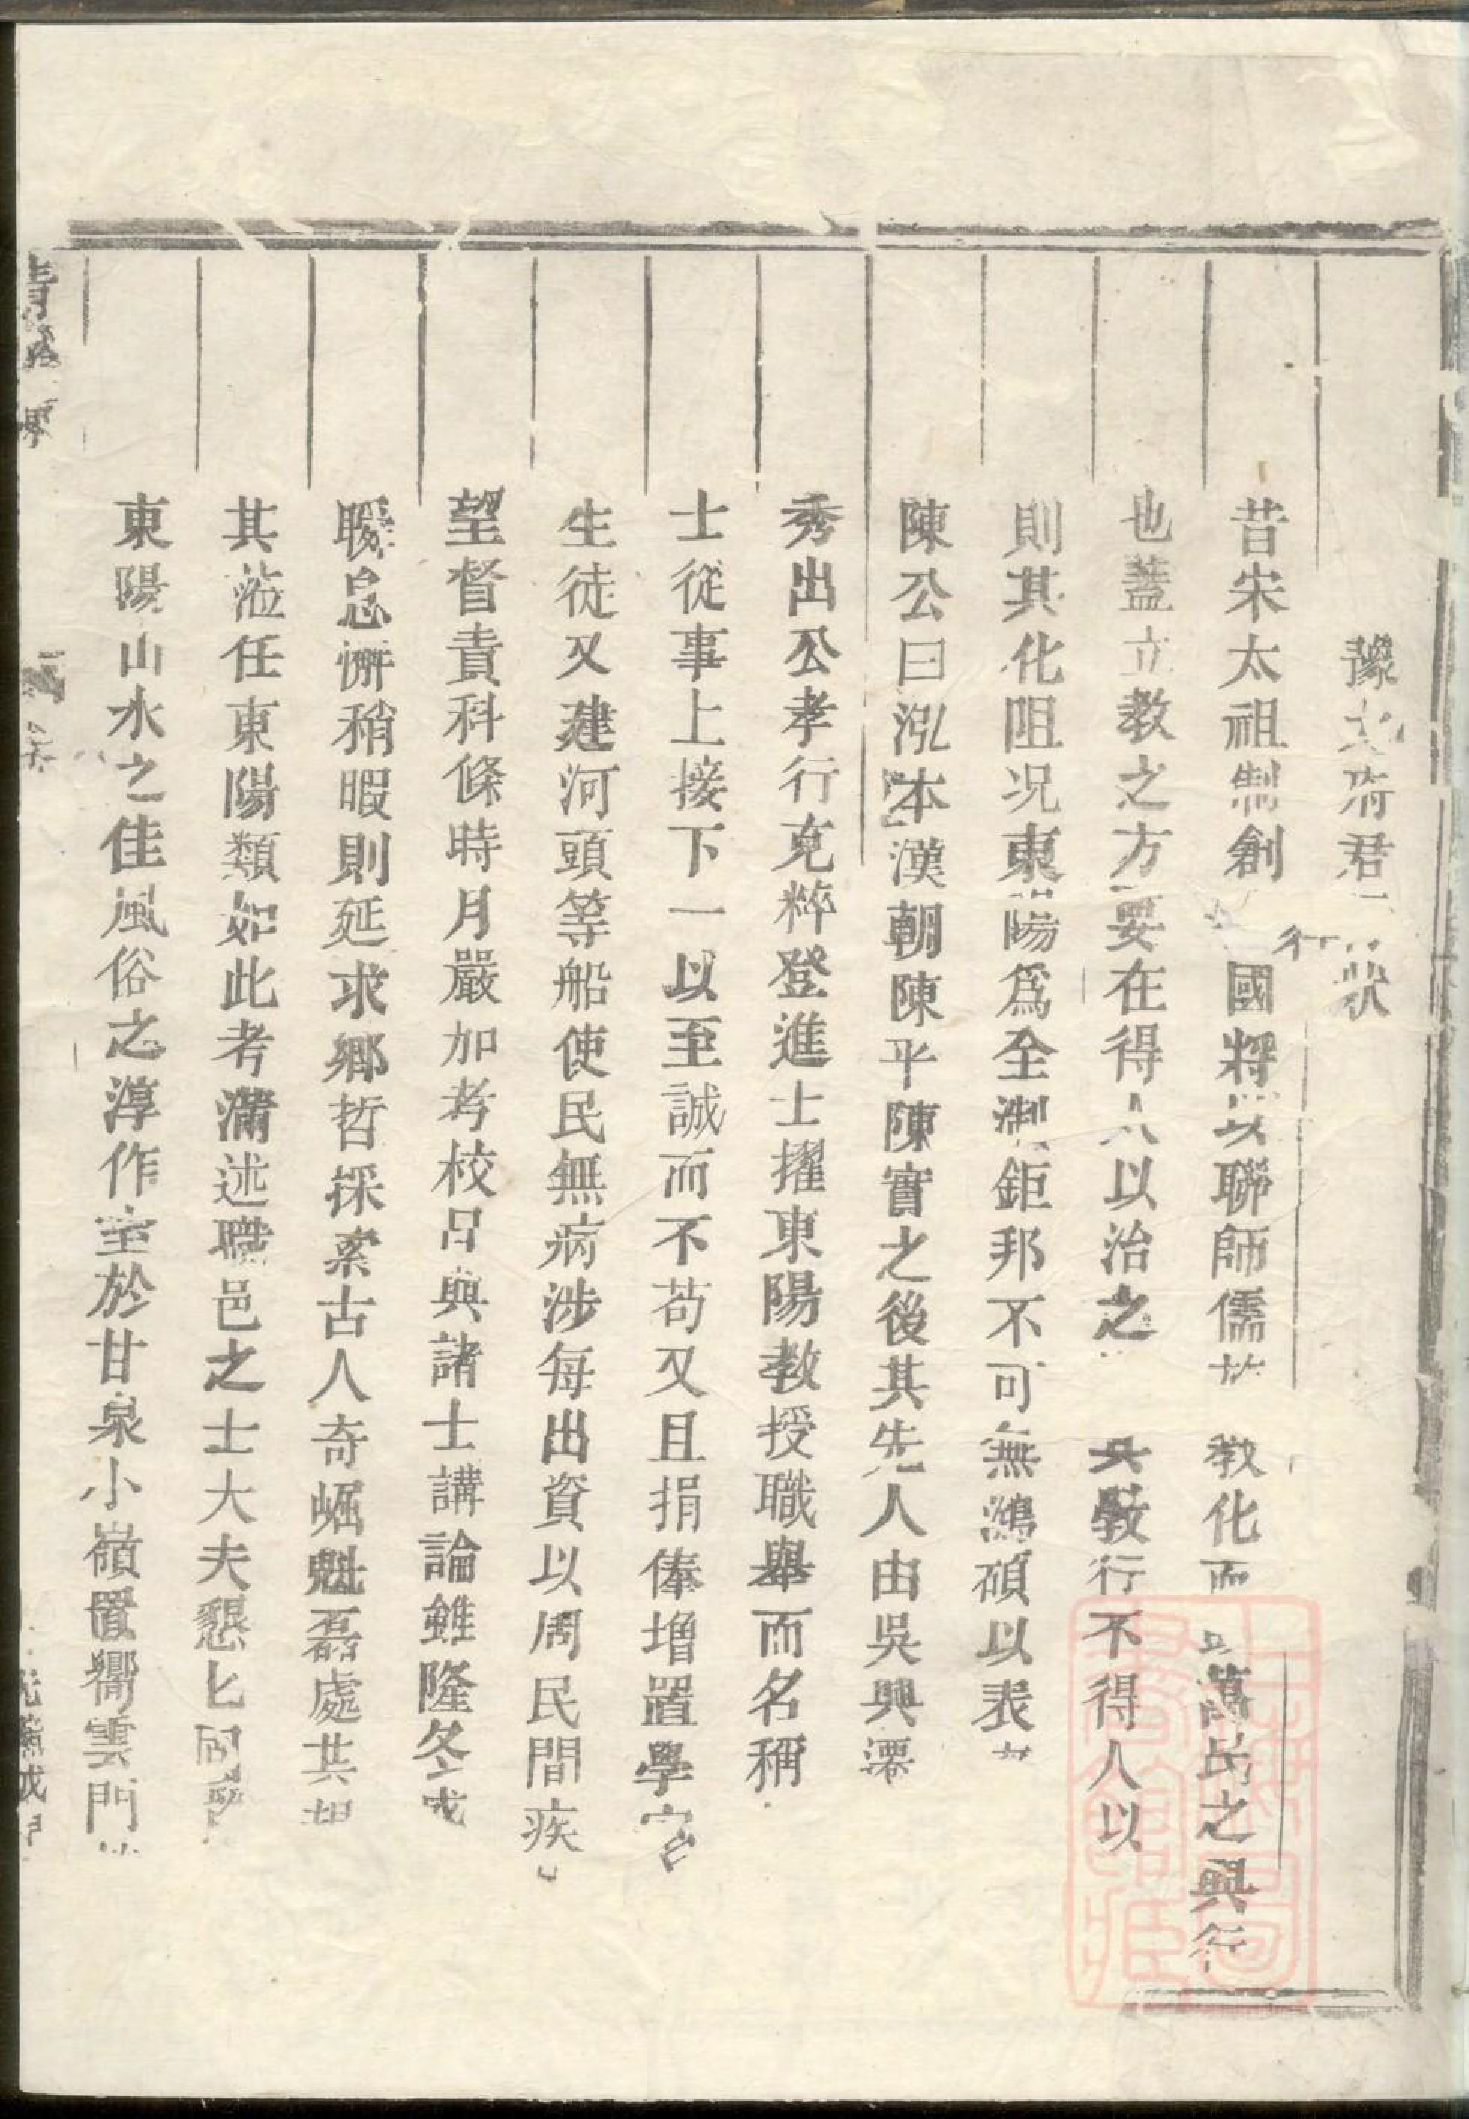 豫 府君 行狀
昔宋太祖制創 國將以聯師儒 教化而 萬民之興行
也蓋立教之方要在得人以治之 其教行不得人以
則其化阻况東陽爲全淛鉅邦不可無鴻碩以表
陳公曰泓本漢朝陳平陳實之後其先人由吳興遷
秀出公孝行克粹登進士擢東陽教授職舉而名稱
士從事上接下一以至誠而不苟又且捐俸增置學宮
生徒又建河頭等船使民無病涉每出資以周民間疾
望督責科條時月嚴加考校日與諸士講論雖隆冬
暖怠懈稍暇則延求鄉哲採索古人奇崛魁磊處共
其蒞任東陽類如此考滿述職邑之士大夫懇 國
東陽山水之佳風俗之淳作室於甘泉小嶺置衢雲門